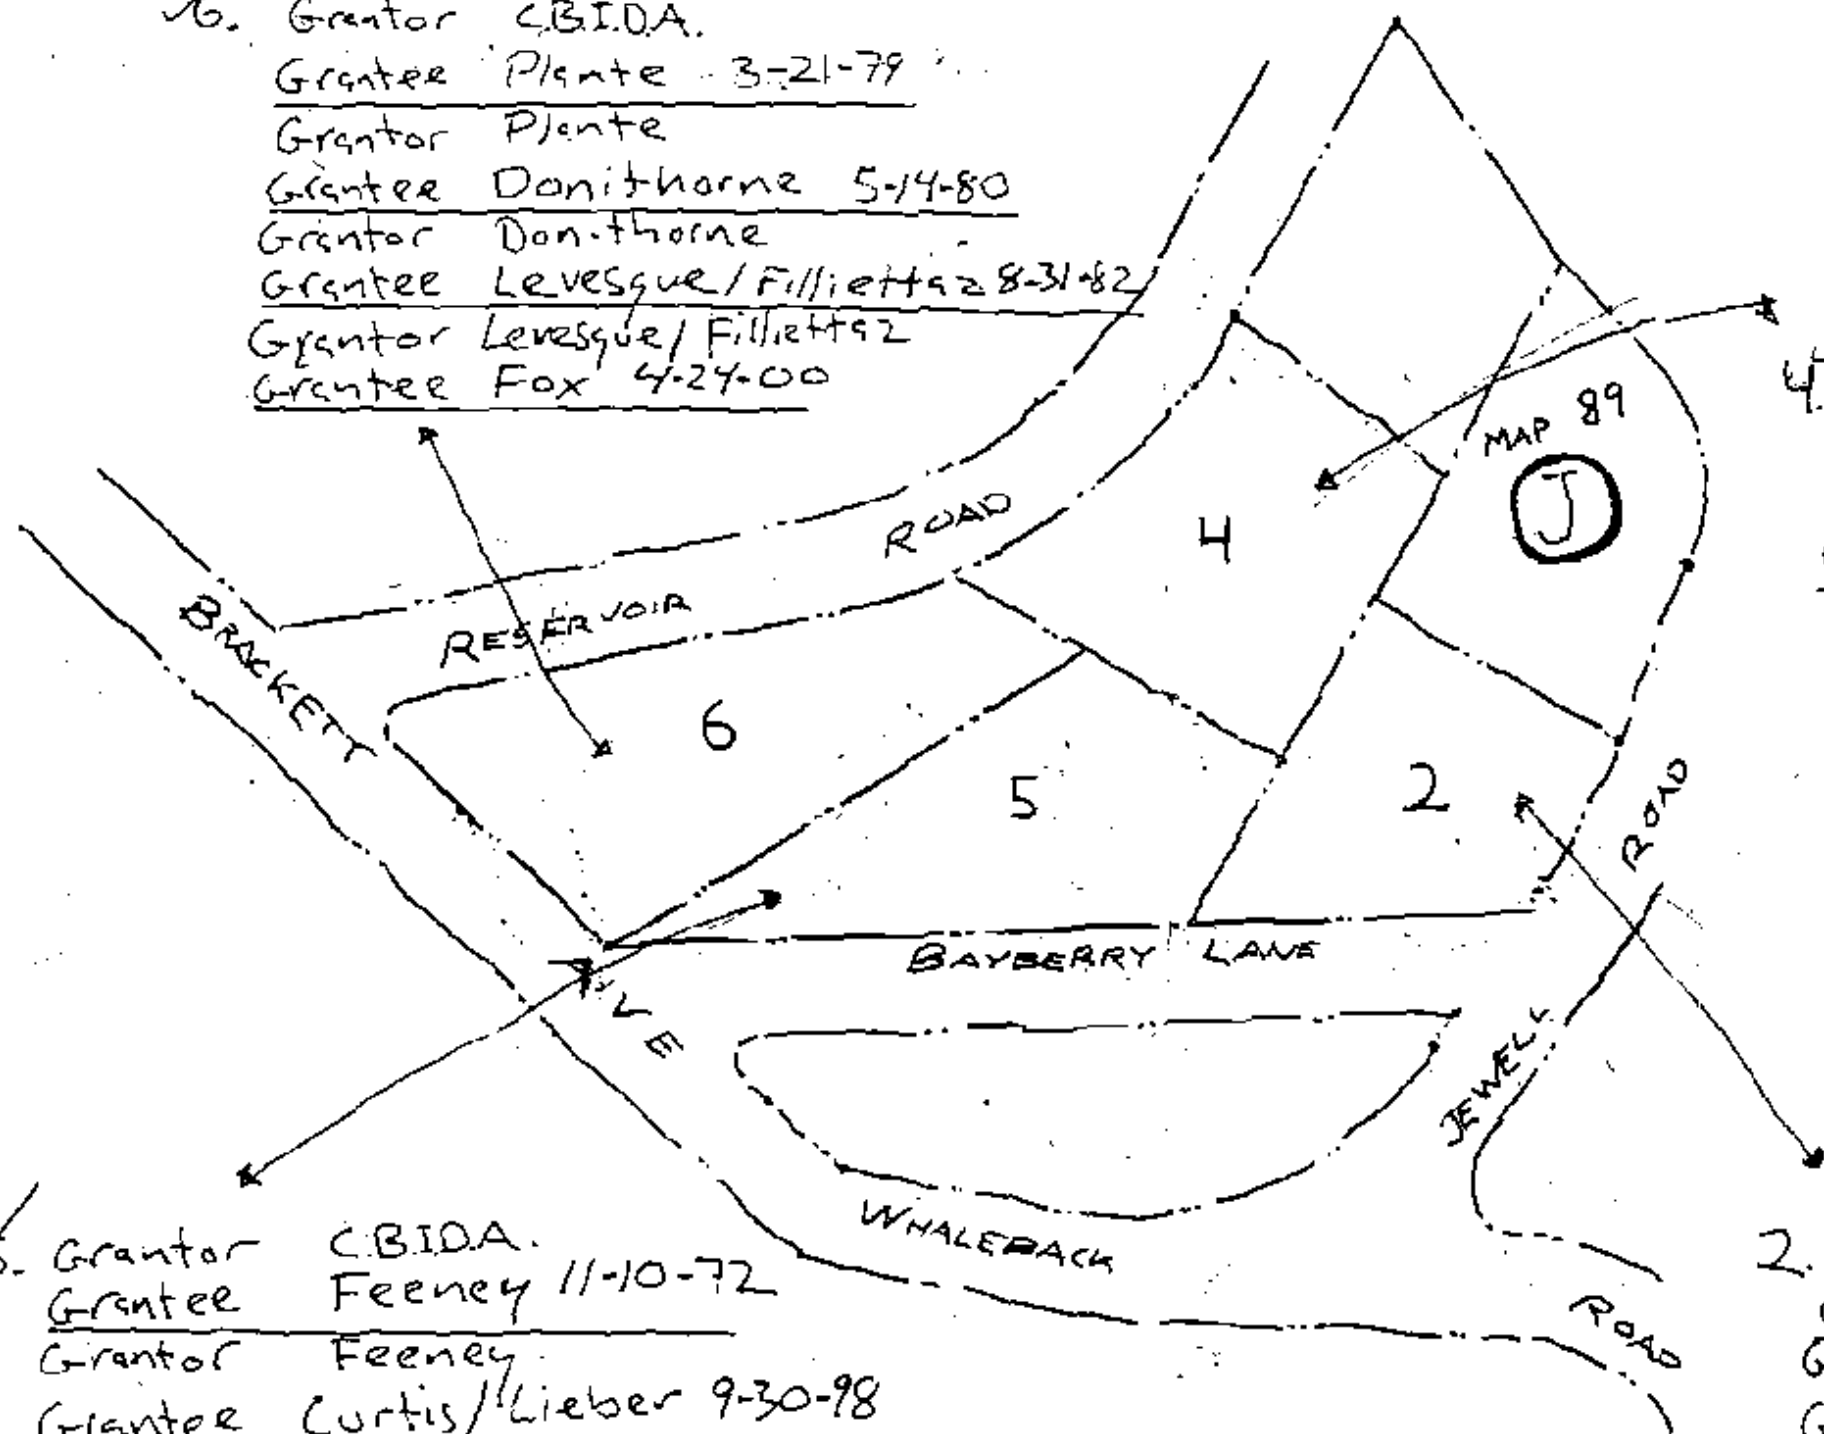 6. Grantor C.B.I.D.A.
Grantee Plante 3-21-79
Grantor Plante
Grantee Donithorne 5-14-80
Grantor Donithorne
Grantee Levesque/Filliettaz 8-31-82
Grantor Levesque/Filliettaz
Grantee Fox 4-24-00
4.
MAP 89
J
4
RESERVOIR ROAD
BRACKETT AVE
6
5
2
BAYBERRY LANE
JEWELL ROAD
WHALEBACK ROAD
5. Grantor C.B.I.D.A.
Grantee Feeney 11-10-72
Grantor Feeney
Grantee Curtis/Lieber 9-30-98
2.
G
G